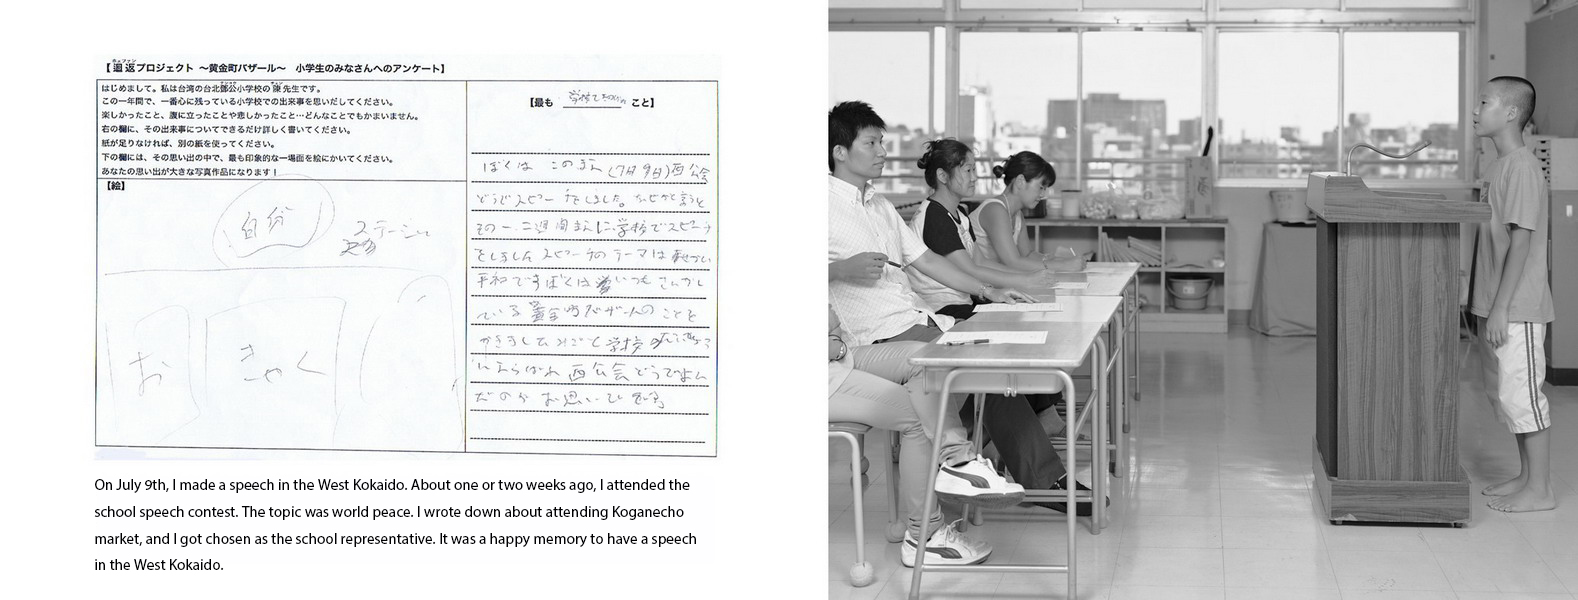 【迴返プロジェクト ～黄金町バザール～ 小学生のみなさんへのアンケート】
はじめまして。私は台湾の台北鄧公小学校の陳先生です。
この一年間で、一番心に残っている小学校での出来事を思いだしてください。
楽しかったこと、腹に立ったことや悲しかったこと…どんなことでもかまいません。
右の欄に、その出来事についてできるだけ詳しく書いてください。
紙が足りなければ、別の紙を使ってください。
下の欄には、その思い出の中で、最も印象的な一場面を絵にかいてください。
あなたの思い出が大きな写真作品になります！
【絵】
自分
ステージ
お
きゃく
【最も 学校で こと】
ぼくは このまえ (7月9日)西公会
どうでスピーチをしました。なぜか言うと
その一、二週間まえに学校でスピーチ
をしました スピーチのテーマは
平和ですぼくは いつも さんかし
ている 黄金町バザールのことを
かきました みごと学校の
にえらばれ 西公会どうでよん
だのが お思いで
On July 9th, I made a speech in the West Kokaido. About one or two weeks ago, I attended the
school speech contest. The topic was world peace. I wrote down about attending Koganecho
market, and I got chosen as the school representative. It was a happy memory to have a speech
in the West Kokaido.